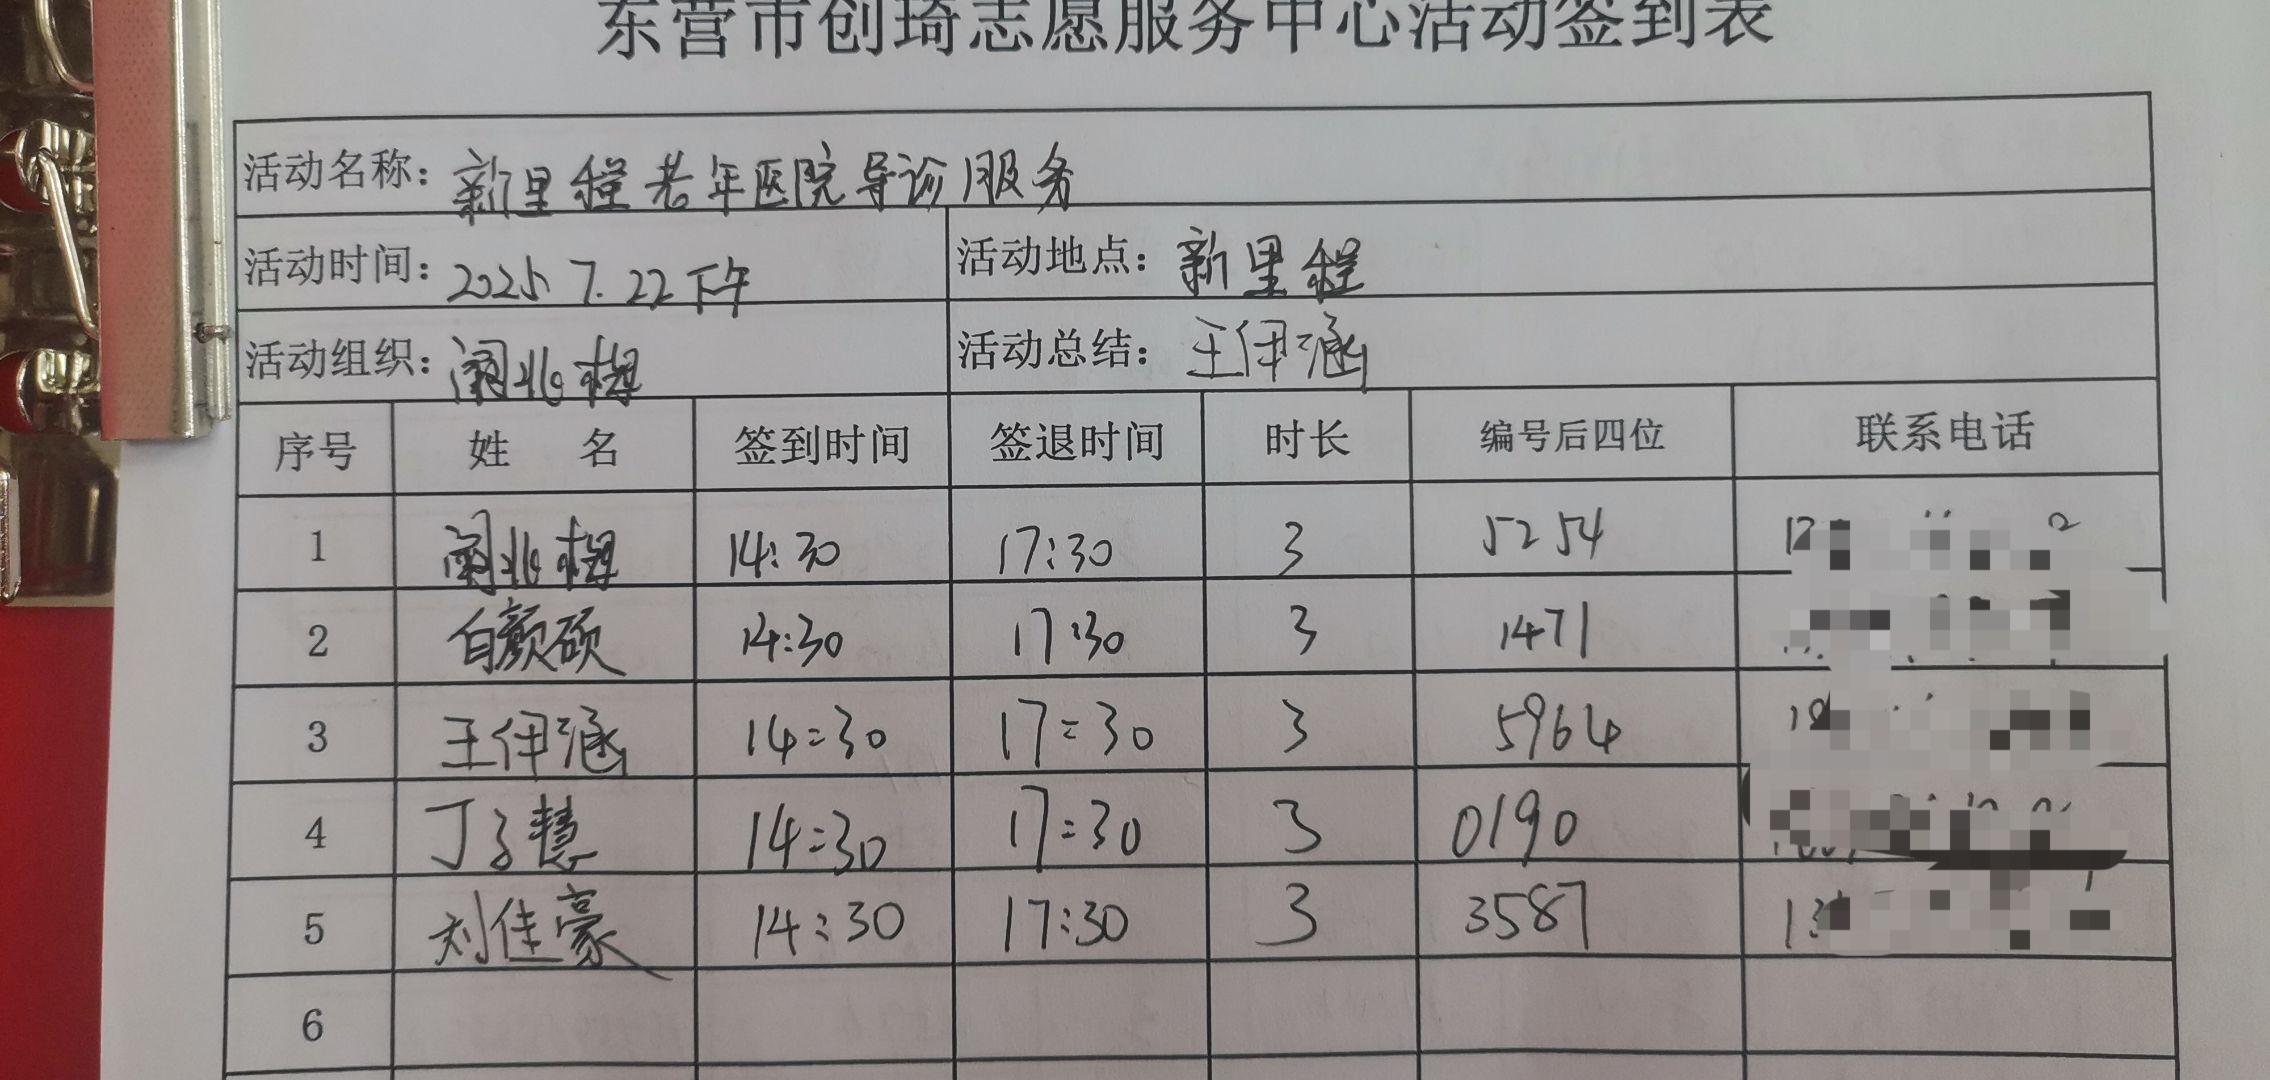 东营市创琦志愿服务中心活动签到表
活动名称：新里程老年医院导诊服务
活动时间：2025.7.22下午 活动地点：新里程
活动组织： 活动总结：王伊涵
序号 姓 名 签到时间 签退时间 时长 编号后四位 联系电话
1 14:30 17:30 3 5254
2 白颜硕 14:30 17:30 3 1471
3 王伊涵 14:30 17:30 3 5964
4 丁子慧 14:30 17:30 3 0190
5 刘佳豪 14:30 17:30 3 3587
6